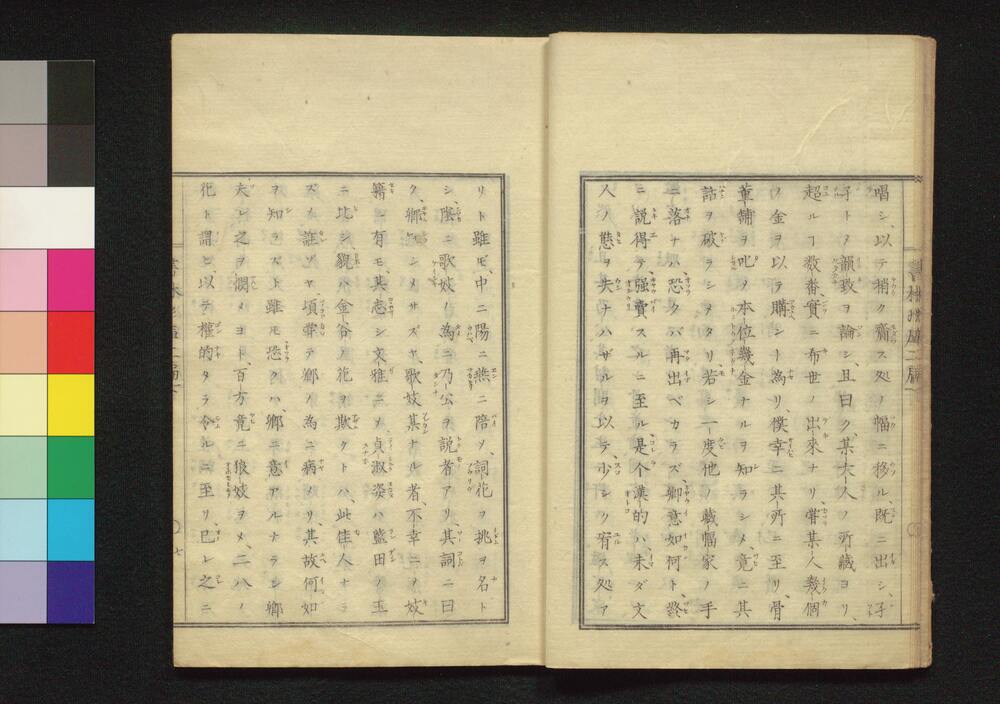 唱シ、以テ稍ク齎ス処ノ幅ニ移ル、既ニ出シ、子
子トメ韻致ヲ論シ、且曰ク、某大人ノ所蔵ヨリ、
超ルヿ数番、實ニ布世ノ出來ナリ、嘗某人幾個
ノ金ヲ以テ購シト為リ、僕幸ニ其所ニ至リ、骨
董舗ヲ叱メ本位幾金ナルヲ知ラシメ、竟ニ其
詁ヲ破ラシヲタリ、若シ一度他ノ蔵幅家ノ手
ニ落ナバ、恐クバ再出ベカラズ、卿意如何ト、終
ニ説得テ強賣スルニ至ル、是个漢的ハ未ダ文
人ノ態ヲ失ナハザルヲ以テ、少シク宥ス処ア
リト雖モ、中ニ陽ニ燕ニ陪ソ、詞花ヲ挑ヲ名ト
シ、陰ニ歌妓ノ為ニ乃公ヲ説者アリ、其詞ニ曰
ク、卿知シメサズヤ、歌妓某ナル者、不幸ニヲ妓
籍ニ有モ、其志シ文雅ニメ、貞淑姿ハ藍田ノ玉
ニ比シ、貌ハ金谷ノ花ヲ欺クトハ、此佳人ナラ
ズメ誰ゾヤ、頃辈テ卿ノ為ニ病メリ、其故何如
ヲ知ラズト雖モ、恐クハ、卿ニ意アルナラン、卿
夫レ之ヲ憫メヨト、百方竟ニ狼妓ヲメ、二八ノ
花ト謂ヒ、以テ權的タラ令ルニ至リ、已レ之ニ
七